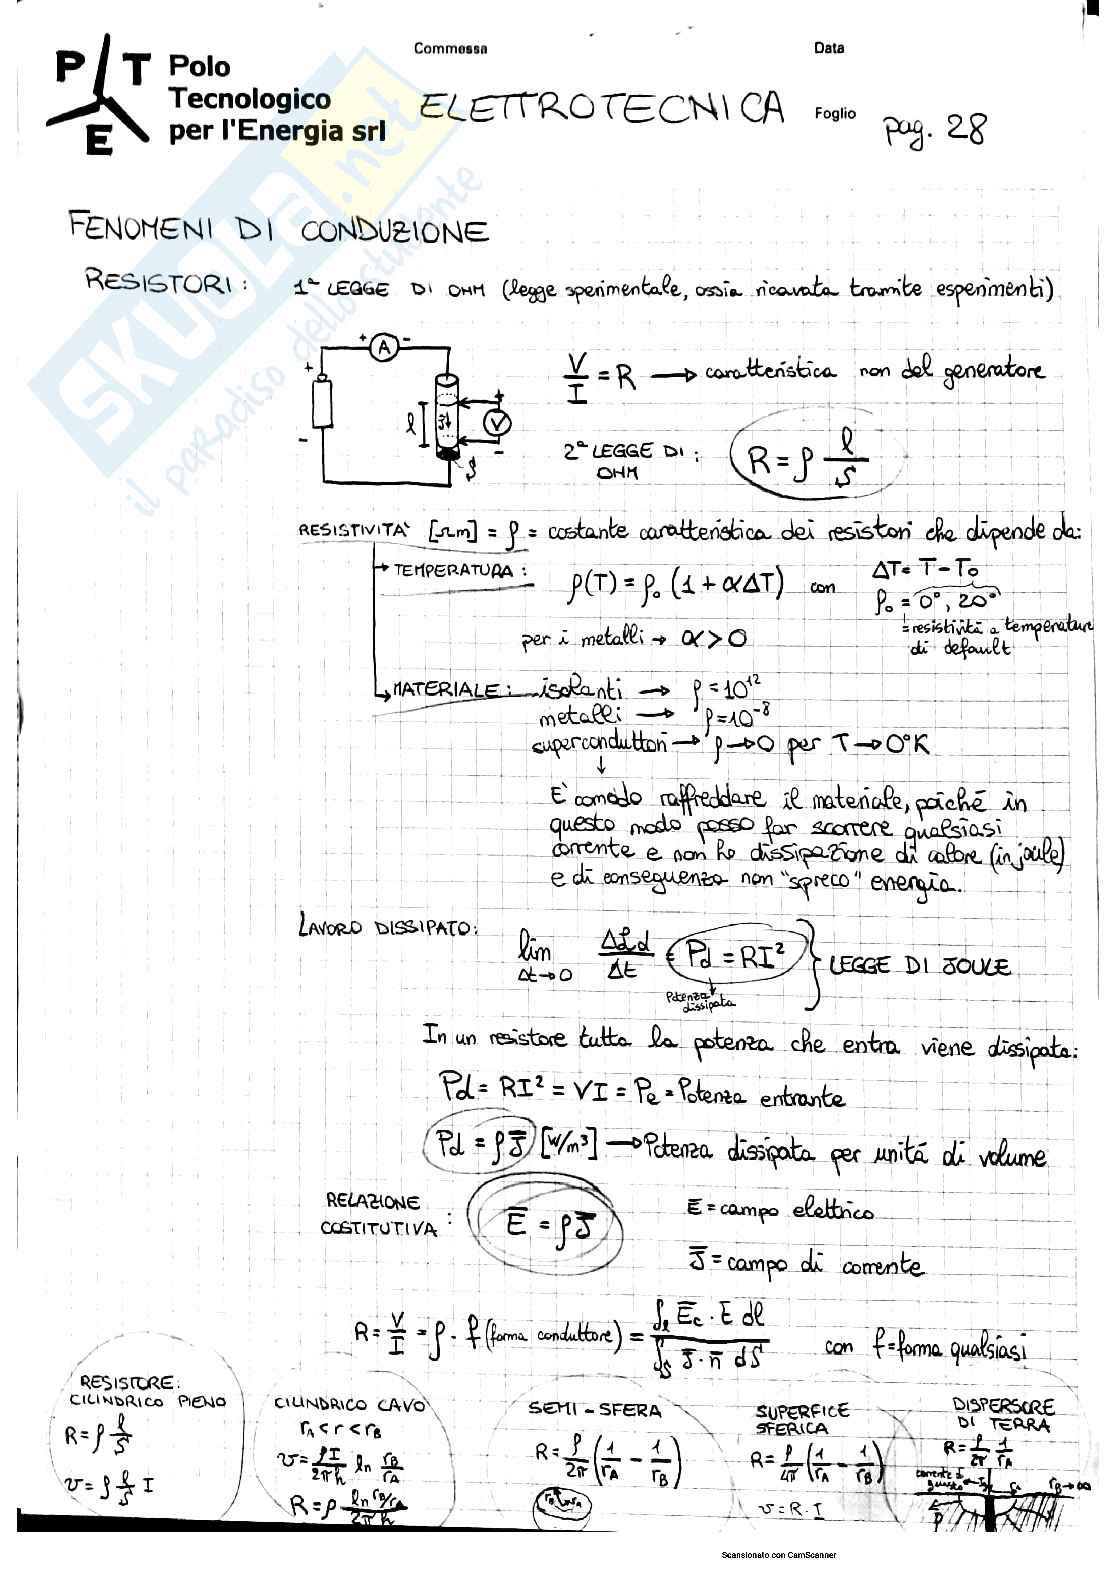 Commessa
Data
P T E
Polo
Tecnologico
per l'Energia srl
ELETTROTECNICA
Foglio
pag. 28
SKUOLA.net
il paradiso dello studente
FENOMENI DI CONDUZIONE
RESISTORI: 1ª LEGGE DI OHM (legge sperimentale, ossia ricavata tramite esperimenti)
+ A -
+
-
l
J↓
+
V
-
S
V/I = R → caratteristica non del generatore
2ª LEGGE DI OHM : R = ρ l/S
RESISTIVITA' [Ωm] = ρ = costante caratteristica dei resistori che dipende da:
→ TEMPERATURA: ρ(T) = ρ₀ (1 + αΔT) con ΔT = T - T₀
ρ₀ = 0°, 20°
= resistività a temperature di default
per i metalli → α > 0
→ MATERIALE: isolanti → ρ = 10¹²
metalli → ρ = 10⁻⁸
superconduttori → ρ → 0 per T → 0°K
↓
E' comodo raffreddare il materiale, poiché in
questo modo posso far scorrere qualsiasi
corrente e non ho dissipazione di calore (in joule)
e di conseguenza non "spreco" energia.
LAVORO DISSIPATO: lim Δt→0 ΔLd/Δt = Pd = RI² } LEGGE DI JOULE
Potenza dissipata
In un resistore tutta la potenza che entra viene dissipata:
Pd = RI² = VI = Pe = Potenza entrante
Pd = ρJ̄ [W/m³] → Potenza dissipata per unità di volume
RELAZIONE COSTITUTIVA : Ē = ρJ̄
Ē = campo elettrico
J̄ = campo di corrente
R = V/I = ρ · f (forma conduttore) = ∫l Ēc · t dl / ∫s J̄ · n̄ dS con f = forma qualsiasi
RESISTORE:
CILINDRICO PIENO
R = ρ l/S
v = ρ l/S I
CILINDRICO CAVO
rA < r < rB
v = ρI/2πh ln rB/rA
R = ρ ln rB/rA / 2πh
SEMI-SFERA
R = ρ/2π (1/rA - 1/rB)
SUPERFICE
SFERICA
R = ρ/4π (1/rA - 1/rB)
v = R · I
DISPERSORE
DI TERRA
R = ρ/2π 1/rA
corrente di guasto
rB → ∞
ρ
Scansionato con CamScanner